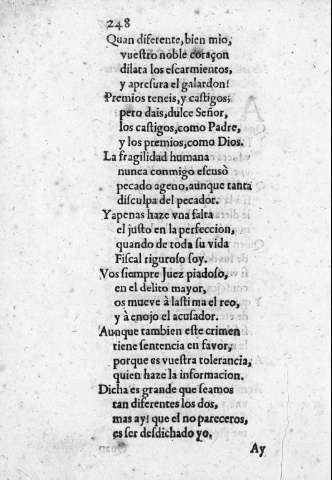 248
Quan diferente, bien mio,
vuestro noble coraçon
dilata los escarmientos,
y apresura el galardon!
Premios teneis, y castigos;
pero dais, dulce Señor,
los castigos, como Padre,
y los premios, como Dios.
La fragilidad humana
nunca conmigo escusò
pecado ageno, aunque tanta
disculpa del pecador.
Yapenas haze vna falta
el justo en la perfeccion,
quando de toda su vida
Fiscal riguroso soy.
Vos siempre Juez piadoso,
en el delito mayor,
os mueve à lastima el reo,
y à enojo el acusador.
Aunque tambien este crimen
tiene sentencia en favor,
porque es vuestra tolerancia,
quien haze la informacion.
Dicha es grande que seamos
tan diferentes los dos,
mas ay! que el no pareceros,
es ser desdichado yo.
Ay